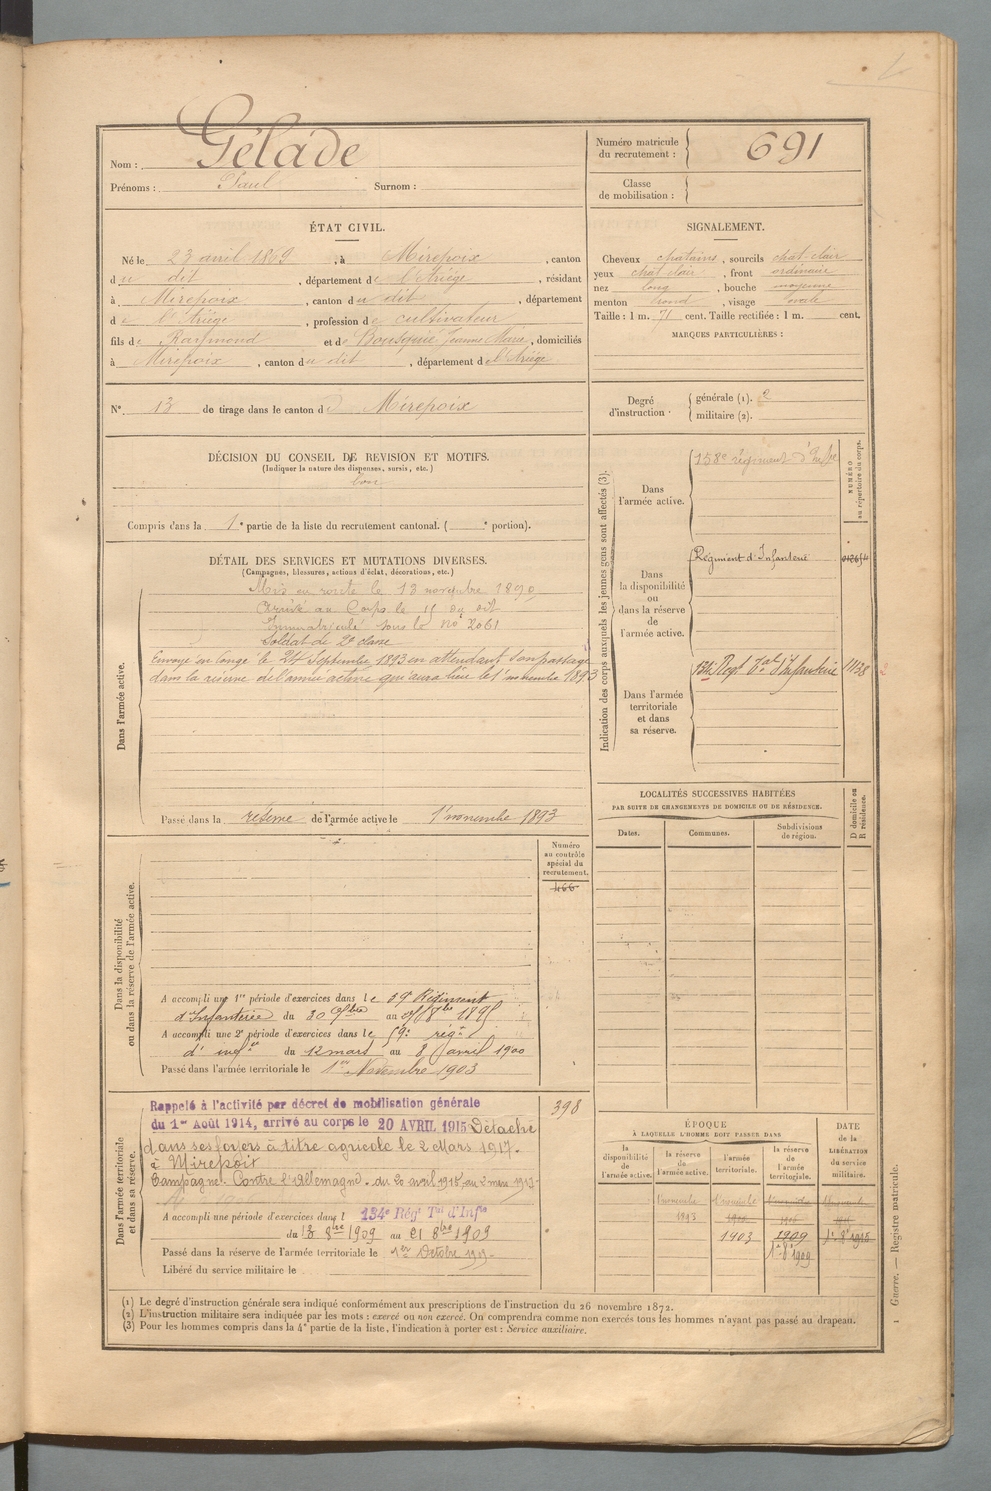 Nom : Gélade
Prénoms : Paul Surnom :
Numéro matricule du recrutement : 691
Classe de mobilisation :
ÉTAT CIVIL.
Né le 23 avril 1869, à Mirepoix, canton
du dit, département de l'Ariège, résidant
à Mirepoix, canton du dit, département
de l'Ariège, profession de cultivateur
fils de Raymond et de Bousquié Jeanne Marie, domiciliés
à Mirepoix, canton du dit, département de l'Ariège
N° 13 de tirage dans le canton de Mirepoix
SIGNALEMENT.
Cheveux chatains, sourcils chat-clair
yeux chat clair, front ordinaire
nez long, bouche moyenne
menton rond, visage ovale
Taille : 1 m. 71 cent. Taille rectifiée : 1 m. cent.
MARQUES PARTICULIÈRES :
Degré d'instruction : générale (1). 2
militaire (2).
DÉCISION DU CONSEIL DE REVISION ET MOTIFS.
(Indiquer la nature des dispenses, sursis, etc.)
bon
Compris dans la 1e partie de la liste du recrutement cantonal. ( e portion).
DÉTAIL DES SERVICES ET MUTATIONS DIVERSES.
(Campagnes, blessures, actions d'éclat, décorations, etc.)
Dans l'armée active.
Mis en route le 13 novembre 1890
Arrivé au Corps le 15 du dit
Immatriculé sous le No 2061
Soldat de 2e classe
Envoyé en congé le 24 Septembre 1893 en attendant son passage
dans la réserve de l'armée active qui aura lieu le 1er novembre 1893
Passé dans la réserve de l'armée active le 1er novembre 1893
Indication des corps auxquels les jeunes gens sont affectés (3).
NUMÉRO au répertoire du corps.
Dans l'armée active.
158e régiment d'Infie
Dans la disponibilité ou dans la réserve de l'armée active.
Régiment d'Infanterie
Dans l'armée territoriale et dans sa réserve.
134e Regt Tal d'Infanterie 11138
LOCALITÉS SUCCESSIVES HABITÉES
PAR SUITE DE CHANGEMENTS DE DOMICILE OU DE RÉSIDENCE.
Dates. Communes. Subdivisions de région. D domicile ou R résidence.
Dans la disponibilité ou dans la réserve de l'armée active.
Numéro au contrôle spécial du recrutement.
466
A accompli une 1re période d'exercices dans le 59e Régiment
d'Infanterie du 30 7bre au 8bre 1895
A accompli une 2e période d'exercices dans le 59e régt
d'infie du 12 mars au 8 avril 1900
Passé dans l'armée territoriale le 1er Novembre 1903
Dans l'armée territoriale et dans sa réserve.
398
Rappelé à l'activité par décret de mobilisation générale
du 1er Août 1914, arrivé au corps le 20 AVRIL 1915 Détaché
dans ses foyers à titre agricole le 2 Mars 1917.
à Mirepoix
Campagne: Contre l'Allemagne. du 20 avril 1915 au 2 mars 1917
A accompli une période d'exercices dans l 134e Régt Tal d'Infie
du 13 8bre 1909 au 21 8bre 1909
Passé dans la réserve de l'armée territoriale le 1er Octobre 1909
Libéré du service militaire le
ÉPOQUE
À LAQUELLE L'HOMME DOIT PASSER DANS
la disponibilité de l'armée active. la réserve de l'armée active. l'armée territoriale. la réserve de l'armée territoriale.
DATE de la LIBÉRATION du service militaire.
1er novembre 1893
1903 1909 1er 8e 1915
1er 8e 1909
(1) Le degré d'instruction générale sera indiqué conformément aux prescriptions de l'instruction du 26 novembre 1872.
(2) L'instruction militaire sera indiquée par les mots : exercé ou non exercé. On comprendra comme non exercés tous les hommes n'ayant pas passé au drapeau.
(3) Pour les hommes compris dans la 4e partie de la liste, l'indication à porter est : Service auxiliaire.
1 Guerre. — Registre matricule.